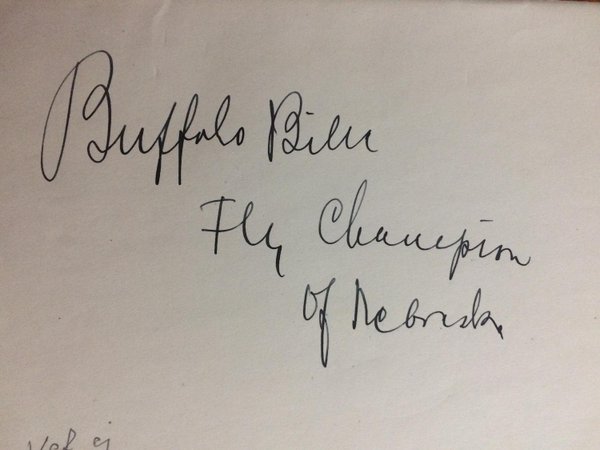 Buffalo Bill
Fly Champion
Of Nebraska